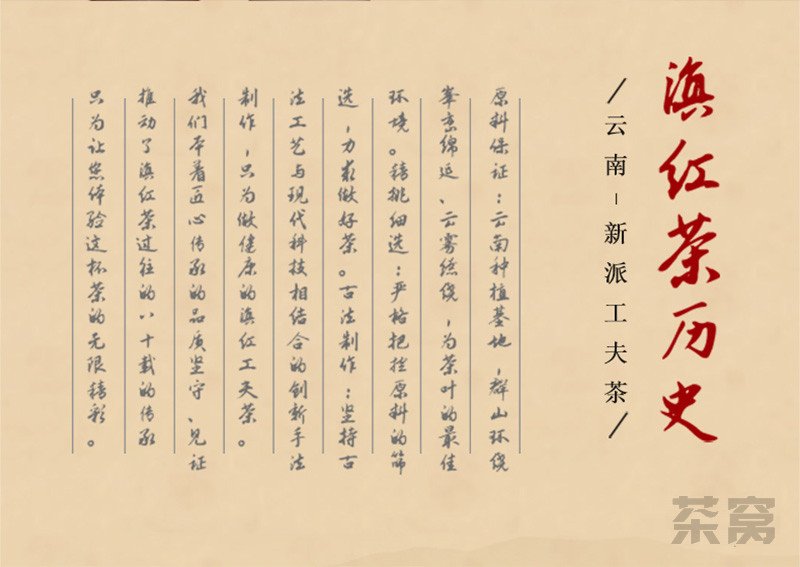 滇红茶历史
/云南-新派工夫茶/
原料保证：云南种植基地，群山环绕
峯峦绵延、云雾缭绕，为茶叶的最佳
环境。精挑细选：严格把控原料的筛
选，力求做好茶。古法制作：坚持古
法工艺与现代科技相结合的创新手法
制作，只为做健康的滇红工夫茶。
我们本着匠心传承的品质坚守、见证
推动了滇红茶过往的八十载的传承
只为让您体验这杯茶的无限精彩。
茶窝